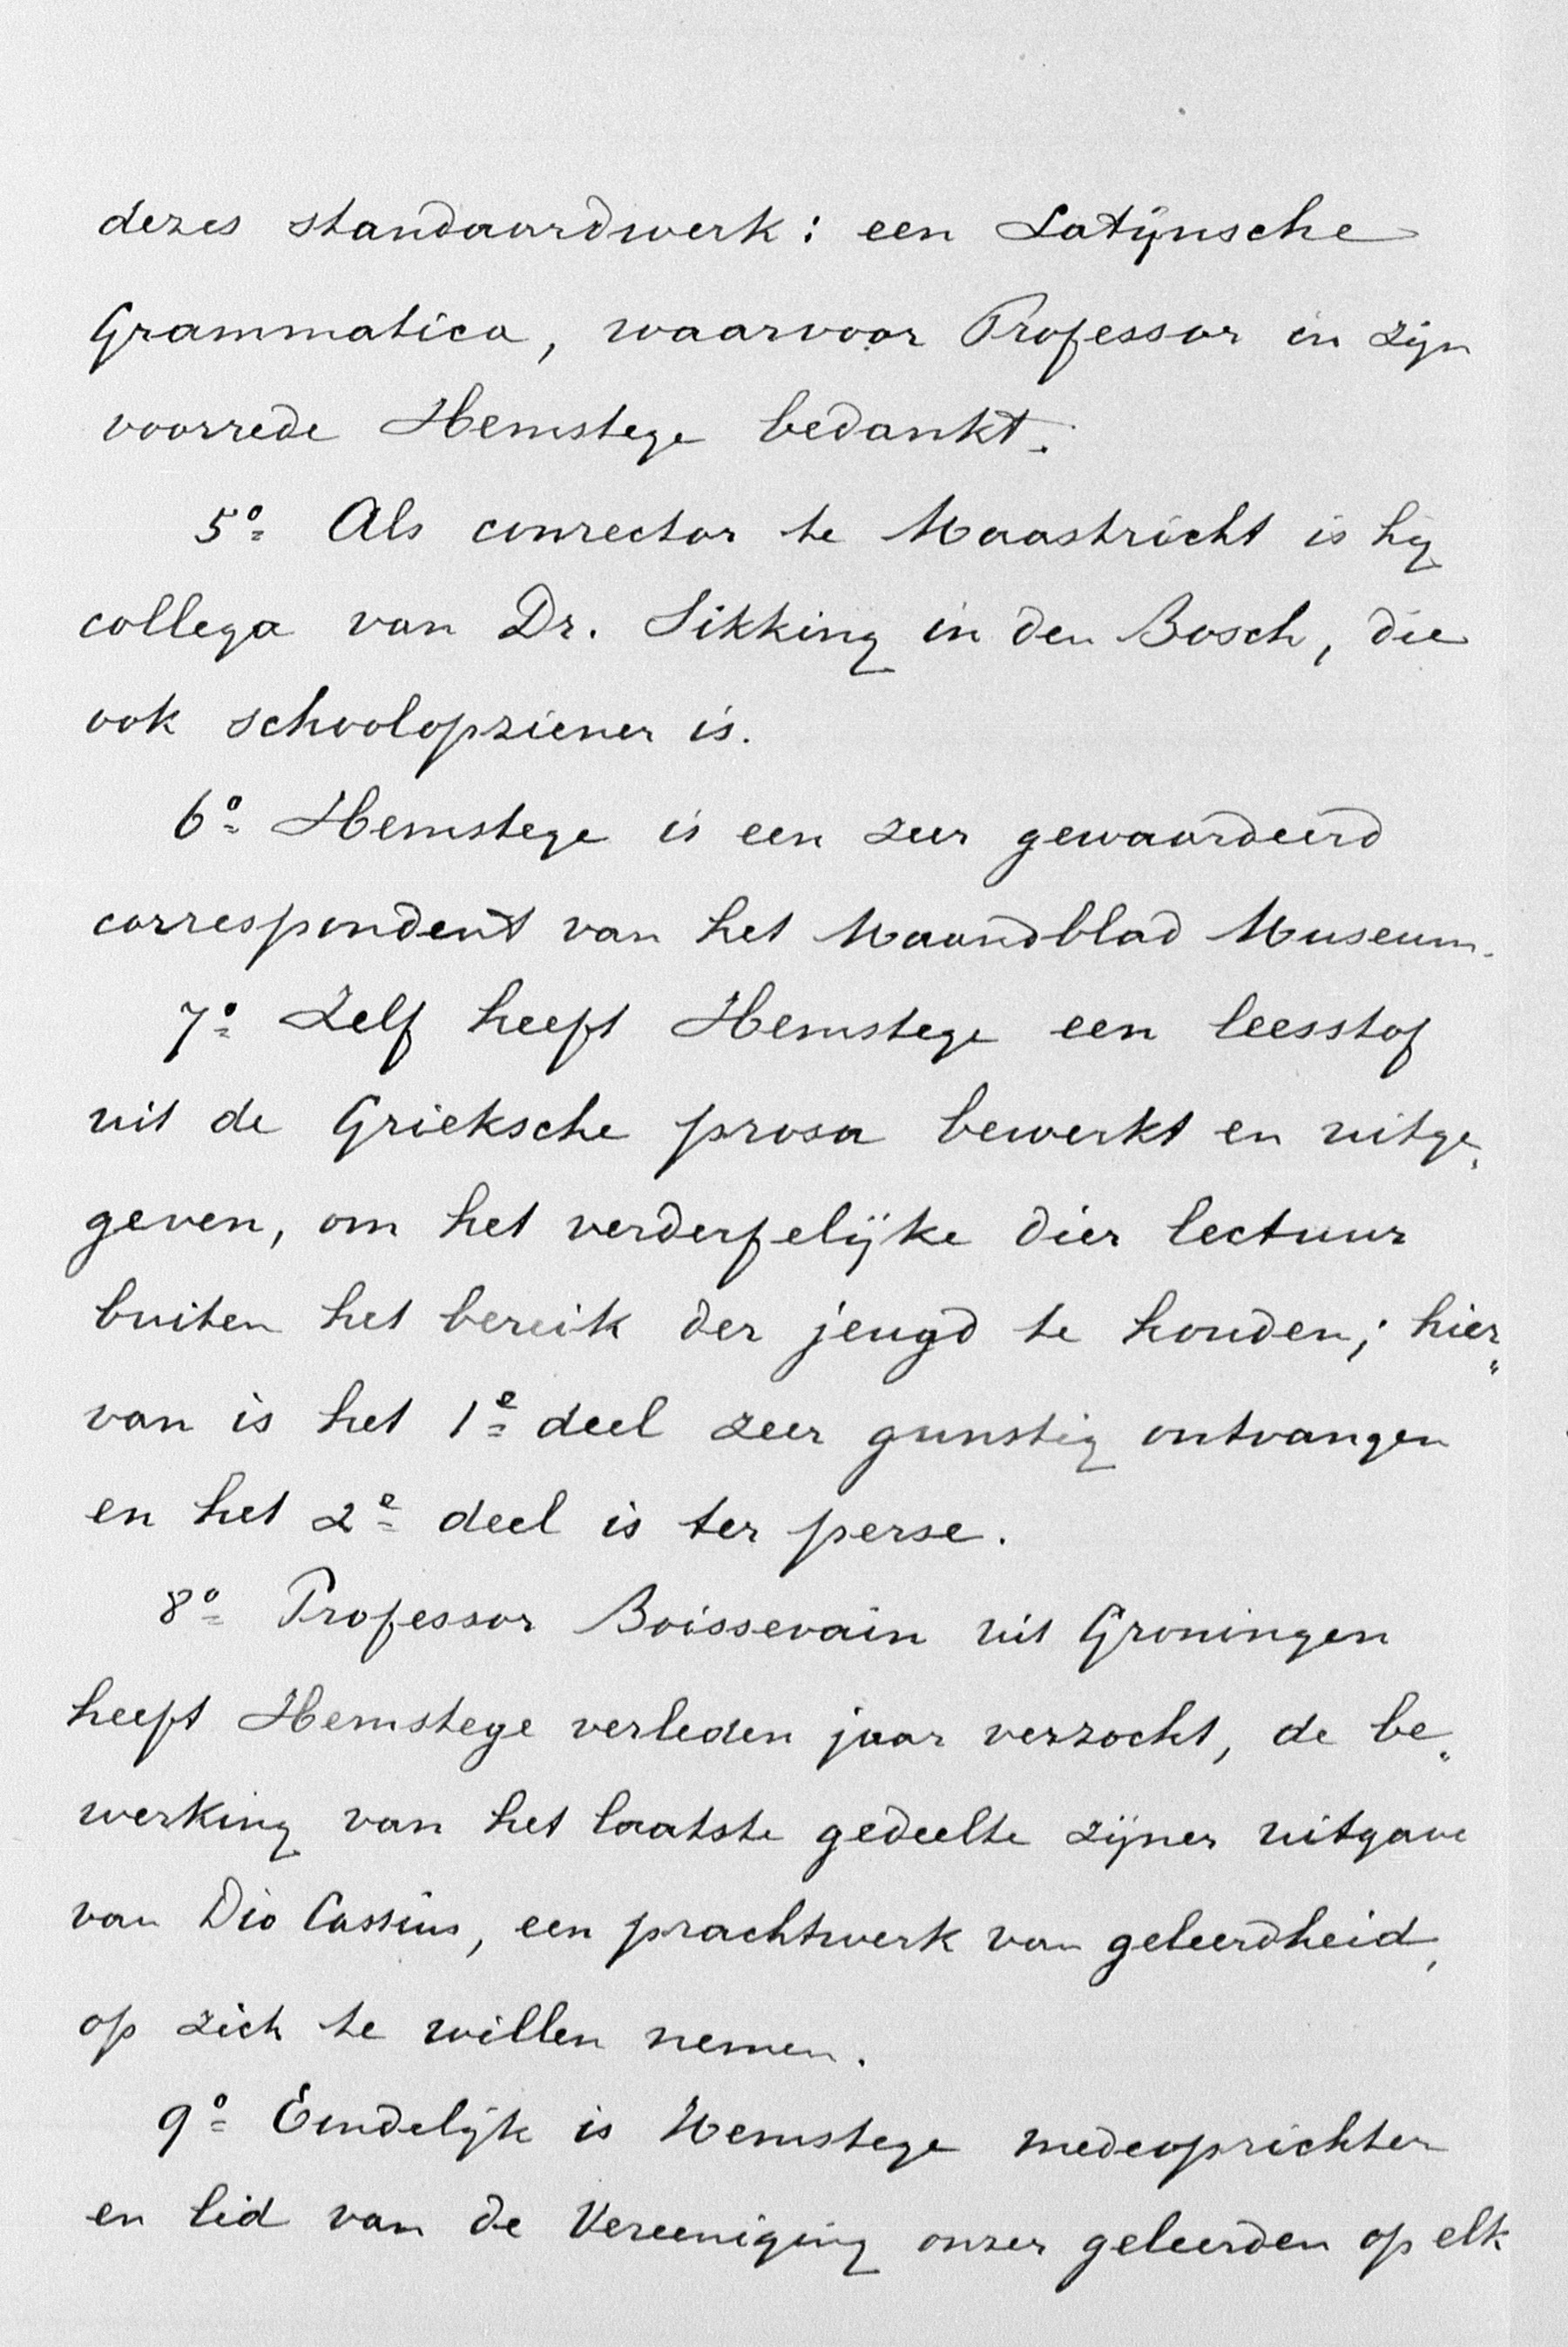 dezes standaardwerk: een Latijnsche
Grammatica, waarvoor Professor in zijn
voorrede Hemstege bedankt.
5º Als conrector te Maastricht is hij
collega van Dr. Sikking in den Bosch, die
ook schoolopziener is.
6º Hemstege is een zeer gewaardeerd
correspondent van het Maandblad Museum.
7º Zelf heeft Hemstege een leesstof
uit de Grieksche prosa bewerkt en uitge„
geven, om het verderfelijke dier lectuur
buiten het bereik der jeugd te houden; hier„
van is het 1e deel zeer gunstig ontvangen
en het 2e deel is ter perse.
8º Professor Boissevain uit Groningen
heeft Hemstege verleden jaar verzocht, de be„
werking van het laatste gedeelte zijner uitgave
van Dio Cassius, een prachtwerk van geleerdheid,
op zich te willen nemen.
9º Eindelijk is Hemstege medeoprichter
en lid van de Vereeniging onzer geleerden op elk